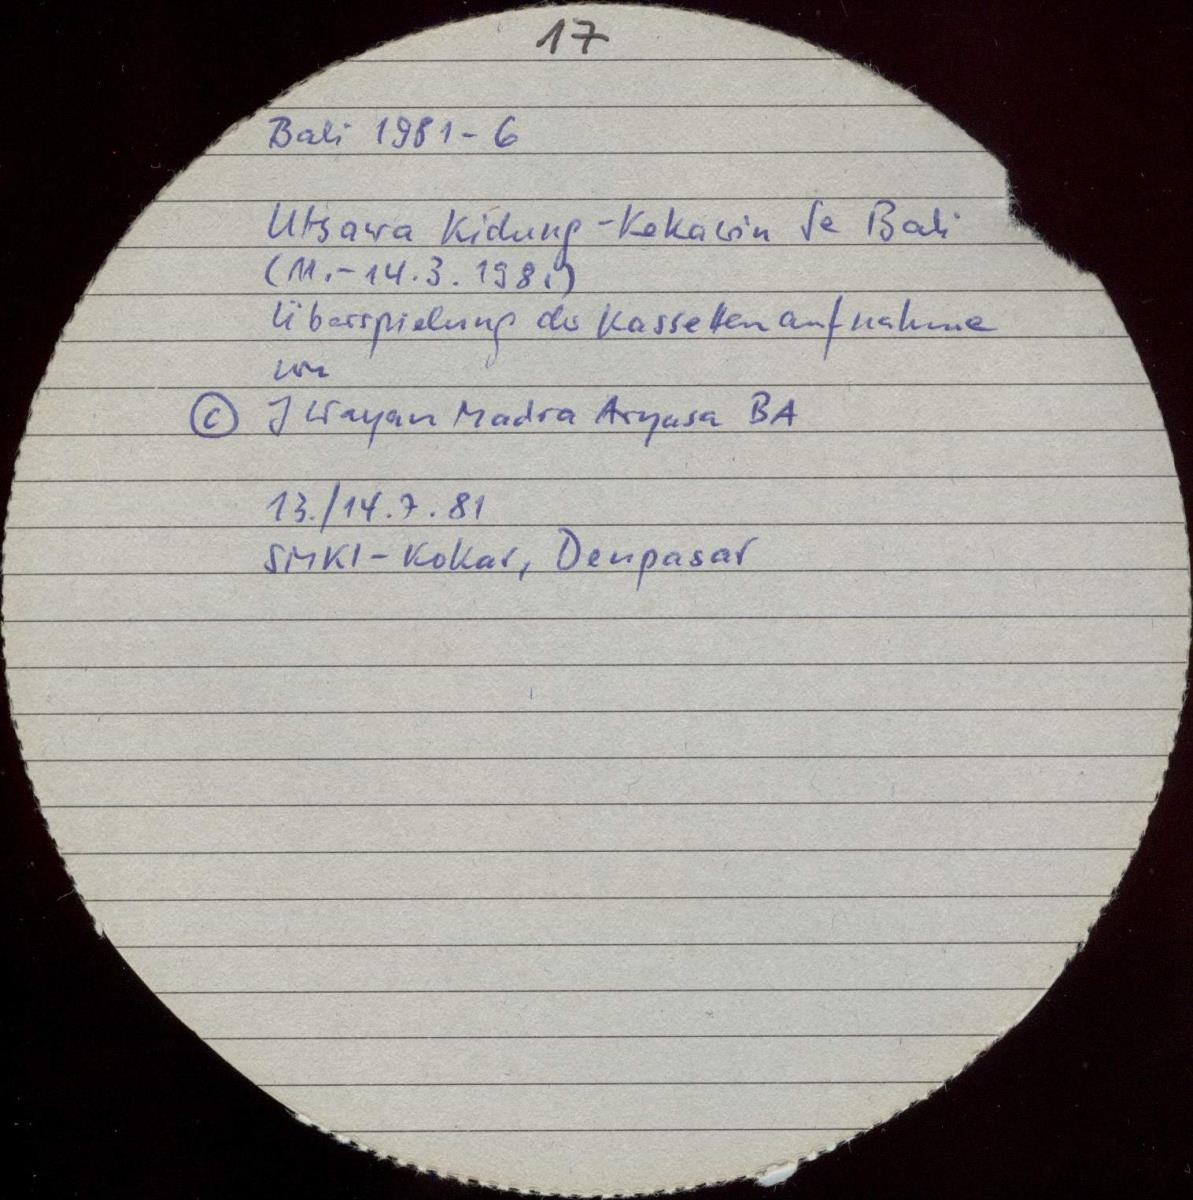 17
Bali 1981-6
Utsawa Kidung-Kekawin Se Bali
(11.-14.3.1981)
Überspielung der Kassettenaufnahme
von
© I Wayan Madra Aryasa BA
13./14.7.81
SMKI-Kokar, Denpasar